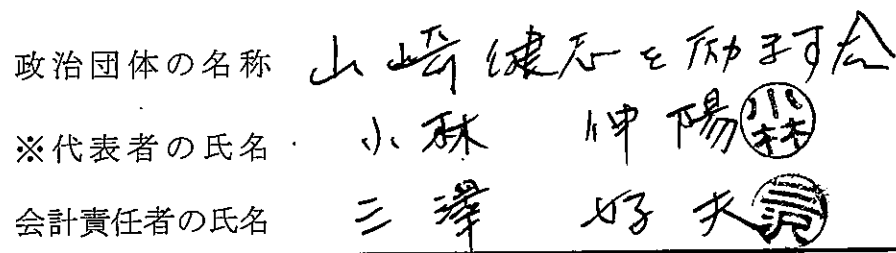 政治団体の名称 山崎健志を励ます会
※代表者の氏名 小林 伸陽 小林
会計責任者の氏名 三澤 好夫